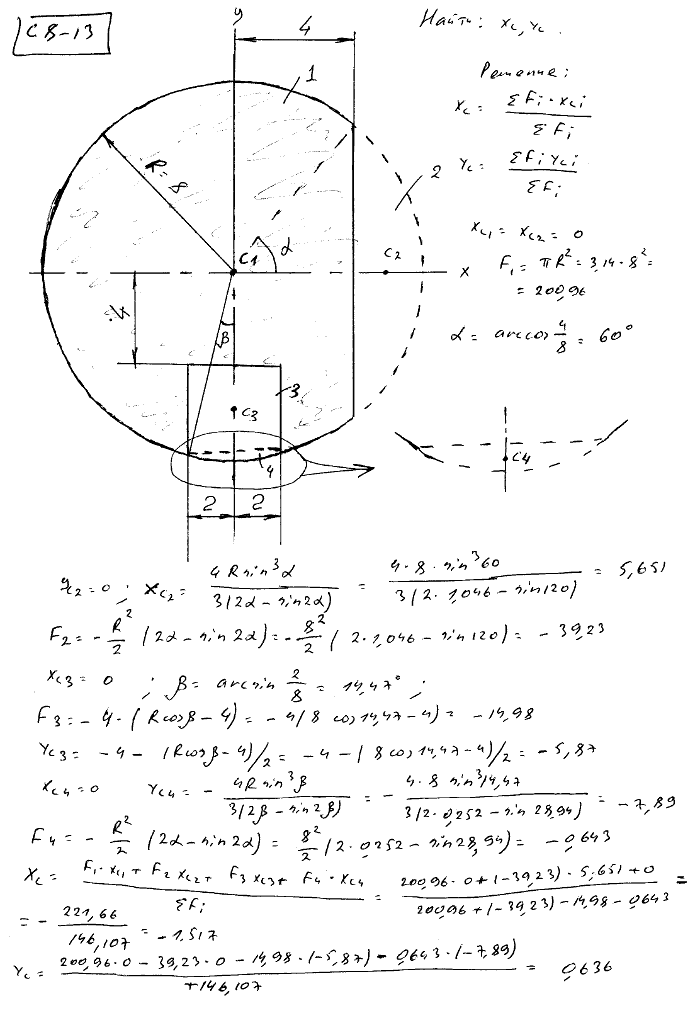 СВ-13
y
4
Найти: xc, yc.
1
Решение:
xc = ΣFi·xci / ΣFi
R=8
2
yc = ΣFi yci / ΣFi
xc1 = xc2 = 0
C1
α
C2
x
F1 = πR² = 3,14·8² =
= 200,96
4
α = arccos 4/8 = 60°
β
3
C3
4
C4
2 2
yc2=0 ; xc2 = 4R sin³α / 3(2α − sin2α) = 4·8·sin³60 / 3(2·1,046 − sin120) = 5,651
F2 = − R²/2 (2α − sin2α) = − 8²/2 (2·1,046 − sin120) = − 39,23
xc3 = 0 ; β = arcsin 2/8 = 14,47° ;
F3 = − 4·(Rcosβ − 4) = − 4(8 cos14,47 − 4) = − 14,98
yc3 = − 4 − (Rcosβ − 4)/2 = − 4 − (8 cos14,47 − 4)/2 = − 5,87
xc4 = 0 yc4 = − 4R sin³β / 3(2β − sin2β) = − 4·8 sin³14,47 / 3(2·0,252 − sin28,94) = − 7,89
F4 = − R²/2 (2α − sin2α) = 8²/2 (2·0,252 − sin28,94) = − 0,643
xc = F1·xc1 + F2 xc2 + F3 xc3 + F4·xc4 / ΣFi = 200,96·0 + (−39,23)·5,651 + 0 / 200,96 + (−39,23) − 14,98 − 0,643 =
= − 221,66 / 146,107 = − 1,517
yc = 200,96·0 − 39,23·0 − 14,98·(−5,87) − 0,643·(−7,89) / +146,107 = 0,636